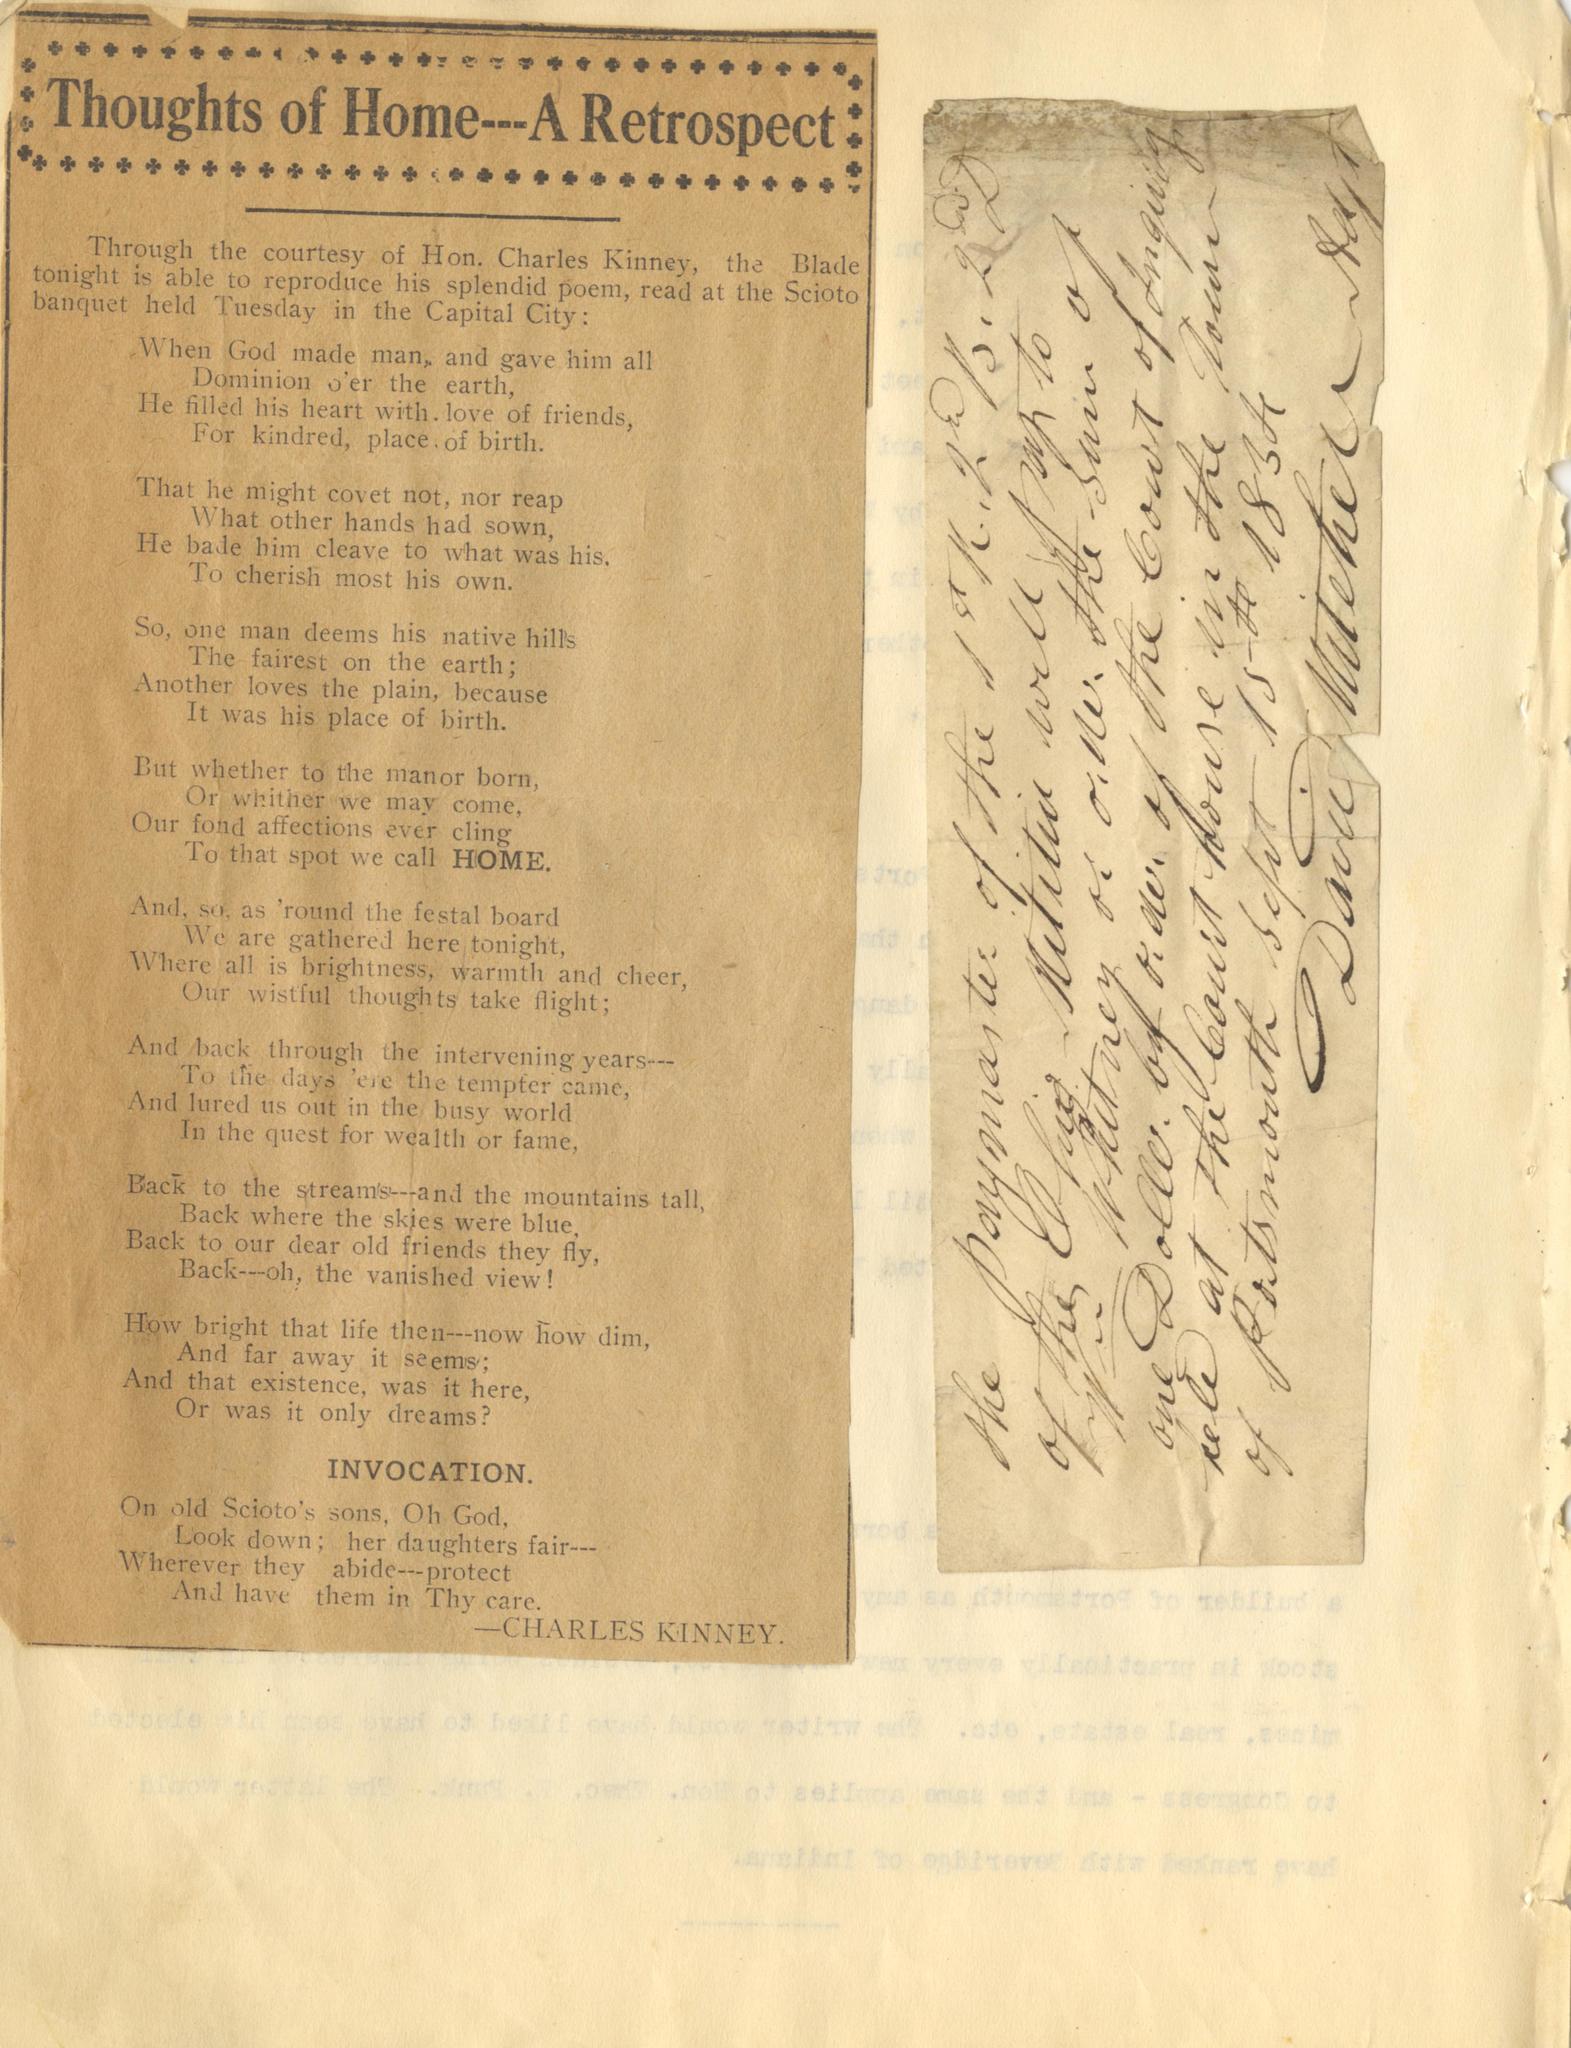 Thoughts of Home---A Retrospect
Through the courtesy of Hon. Charles Kinney, the Blade
tonight is able to reproduce his splendid poem, read at the Scioto
banquet held Tuesday in the Capital City:
When God made man, and gave him all
Dominion o'er the earth,
He filled his heart with love of friends,
For kindred, place of birth.
That he might covet not, nor reap
What other hands had sown,
He bade him cleave to what was his.
To cherish most his own.
So, one man deems his native hills
The fairest on the earth;
Another loves the plain, because
It was his place of birth.
But whether to the manor born,
Or whither we may come,
Our fond affections ever cling
To that spot we call HOME.
And, so, as 'round the festal board
We are gathered here tonight,
Where all is brightness, warmth and cheer,
Our wistful thoughts take flight;
And back through the intervening years---
To the days 'ere the tempter came,
And lured us out in the busy world
In the quest for wealth or fame,
Back to the streams---and the mountains tall,
Back where the skies were blue,
Back to our dear old friends they fly,
Back---oh, the vanished view!
How bright that life then---now how dim,
And far away it seems;
And that existence, was it here,
Or was it only dreams?
INVOCATION.
On old Scioto's sons, Oh God,
Look down; her daughters fair---
Wherever they abide---protect
And have them in Thy care.
—CHARLES KINNEY.
the paymaster of the 1st R. 2d B. 2d D
of the Ohio Militia will pay to
Whitney or order the sum of
one Dollar by order of the Court of Inquiry
held at the Court house in the Town
of Portsmouth Sept 15th 1834
David Mitchel
a builder of Portsmouth as any
stock in practically every new
mines, real estate, etc. The writer would have liked to have seen his elected
to Congress - and the same applies to Hon. Theo. K. Funk. The latter would
have ranked with Beveridge of Indiana.